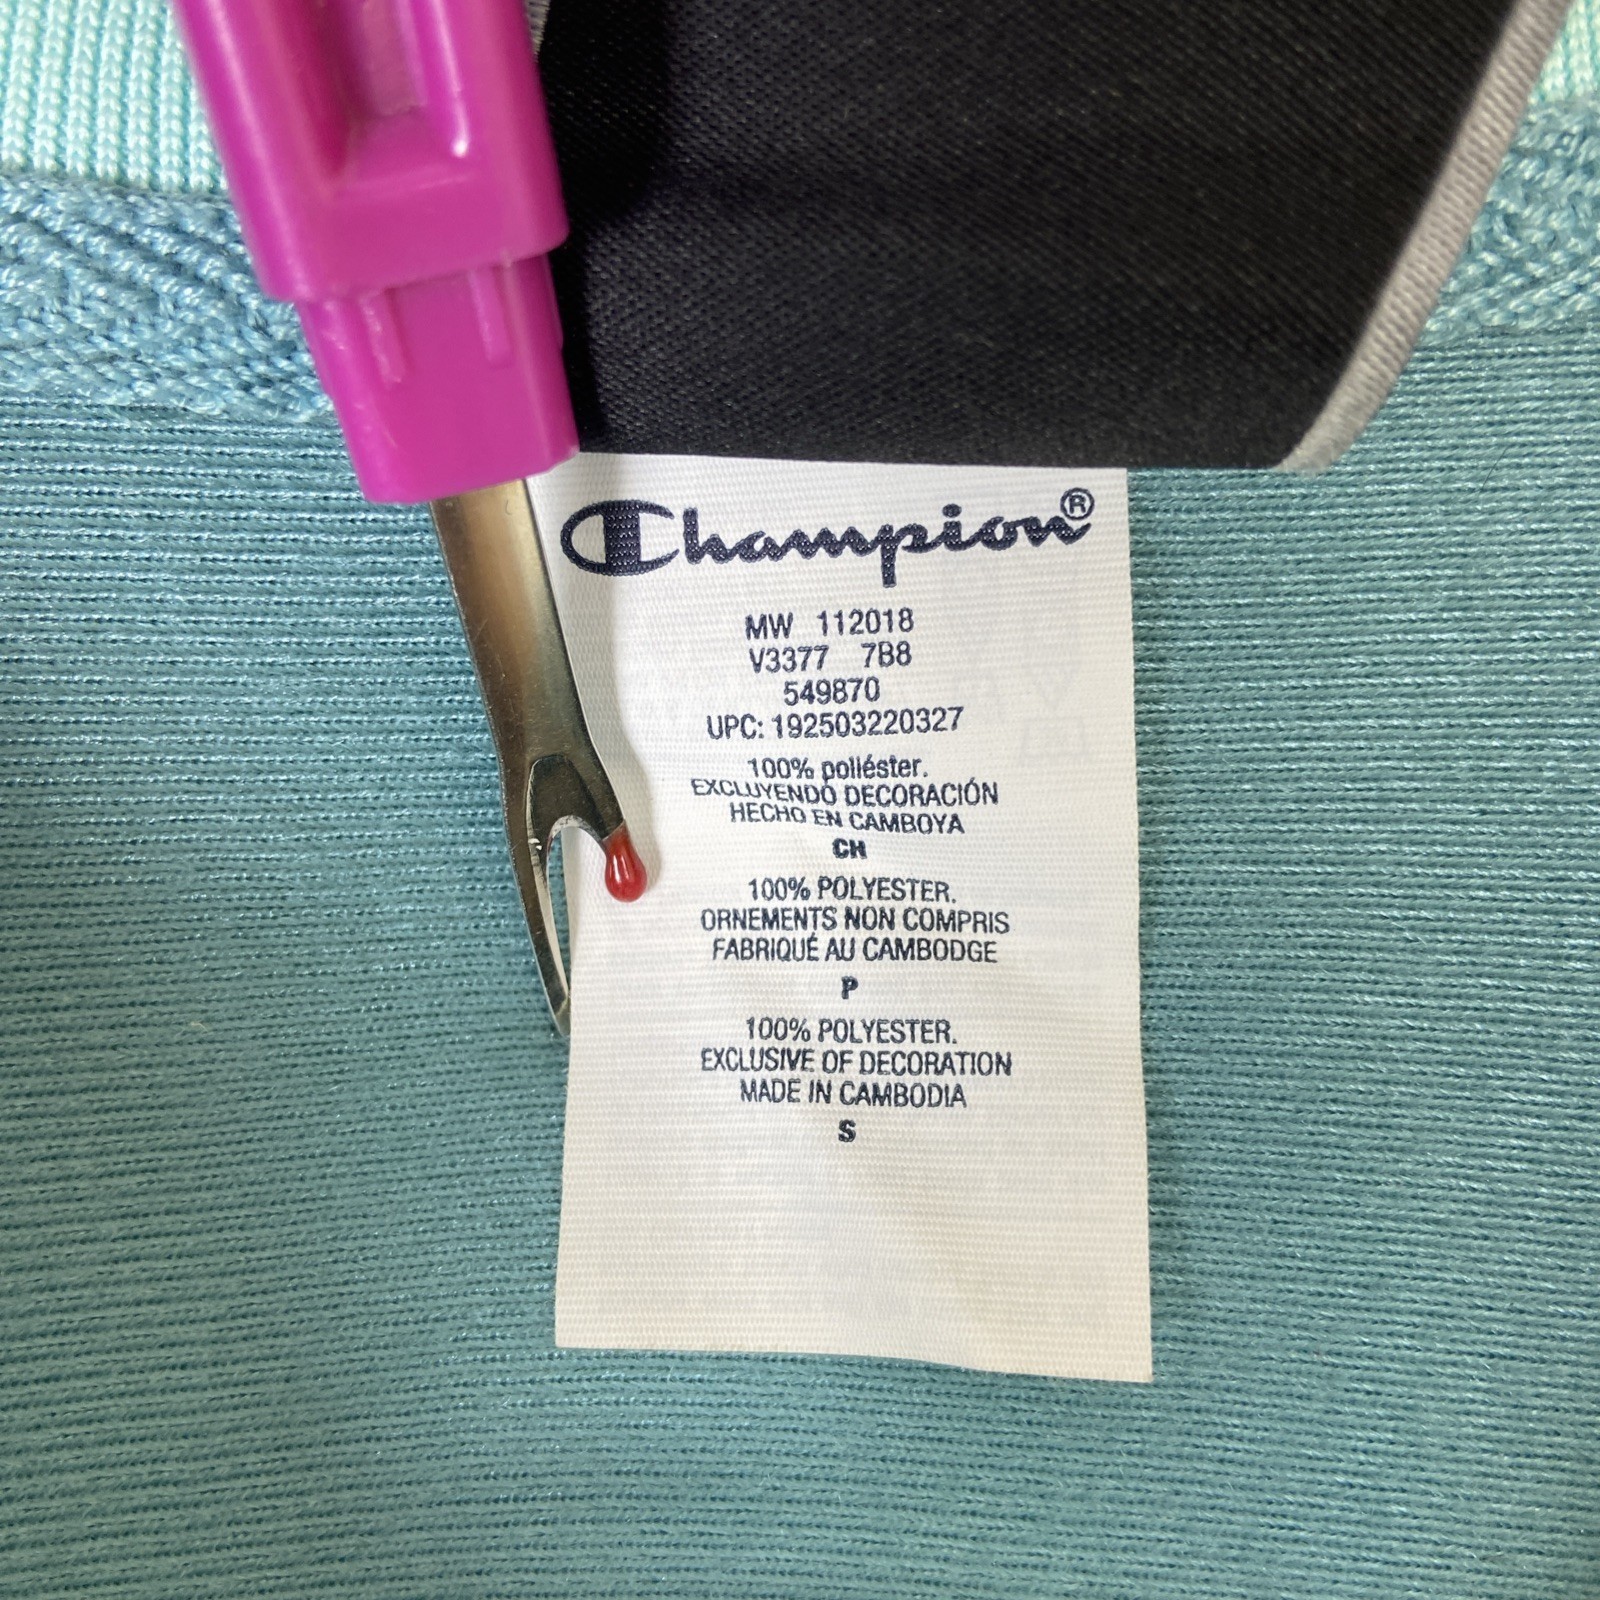 Champion®
MW 112018
V3377 7B8
549870
UPC: 192503220327
100% poliéster.
EXCLUYENDO DECORACIÓN
HECHO EN CAMBOYA
CH
100% POLYESTER.
ORNEMENTS NON COMPRIS
FABRIQUÉ AU CAMBODGE
P
100% POLYESTER.
EXCLUSIVE OF DECORATION
MADE IN CAMBODIA
S